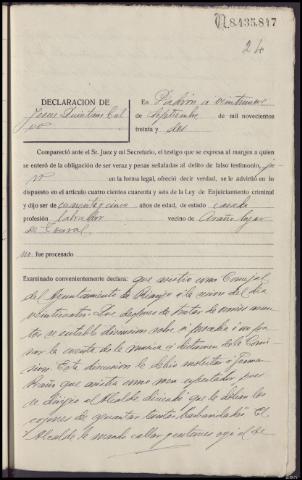 N 8.435.847
24
DECLARACION DE
Jesus Quintans Cal
vo
En Padrón a veintinueve
de Septiembre de mil novecientos
treinta y dos
Compareció ante el Sr. Juez y mi Secretario, el testigo que se expresa al margen a quien
se enteró de la obligación de ser veraz y penas señaladas al delito de falso testimonio, ju-
ró en la forma legal, ofreció decir verdad, se le advirtió en lo
dispuesto en el artículo cuatro cientos cuarenta y seis de la Ley de Enjuiciamiento criminal
y dijo ser de cuarenta y cinco años de edad, de estado casado
profesión labrador vecino de Araño lugar
de
no fue procesado
Examinado convenientemente declara: que asistió como Concejal
del Ayuntamiento de Rianjo a la sesión del dia
veinticuatro. Que despues de tratar de varios asun-
tos se entabló discusion sobre si procedia o no pa-
sar la cuenta de la musica a dictamen de la Comi-
sion. Esta discusion le debio molestar a
que asistia como mero espectador pues
se dirigio al Alcalde diciendo que le debian los
cojones de aguantar tantas barbaridades. El
Alcalde le mandó callar y entonces oyó el de-